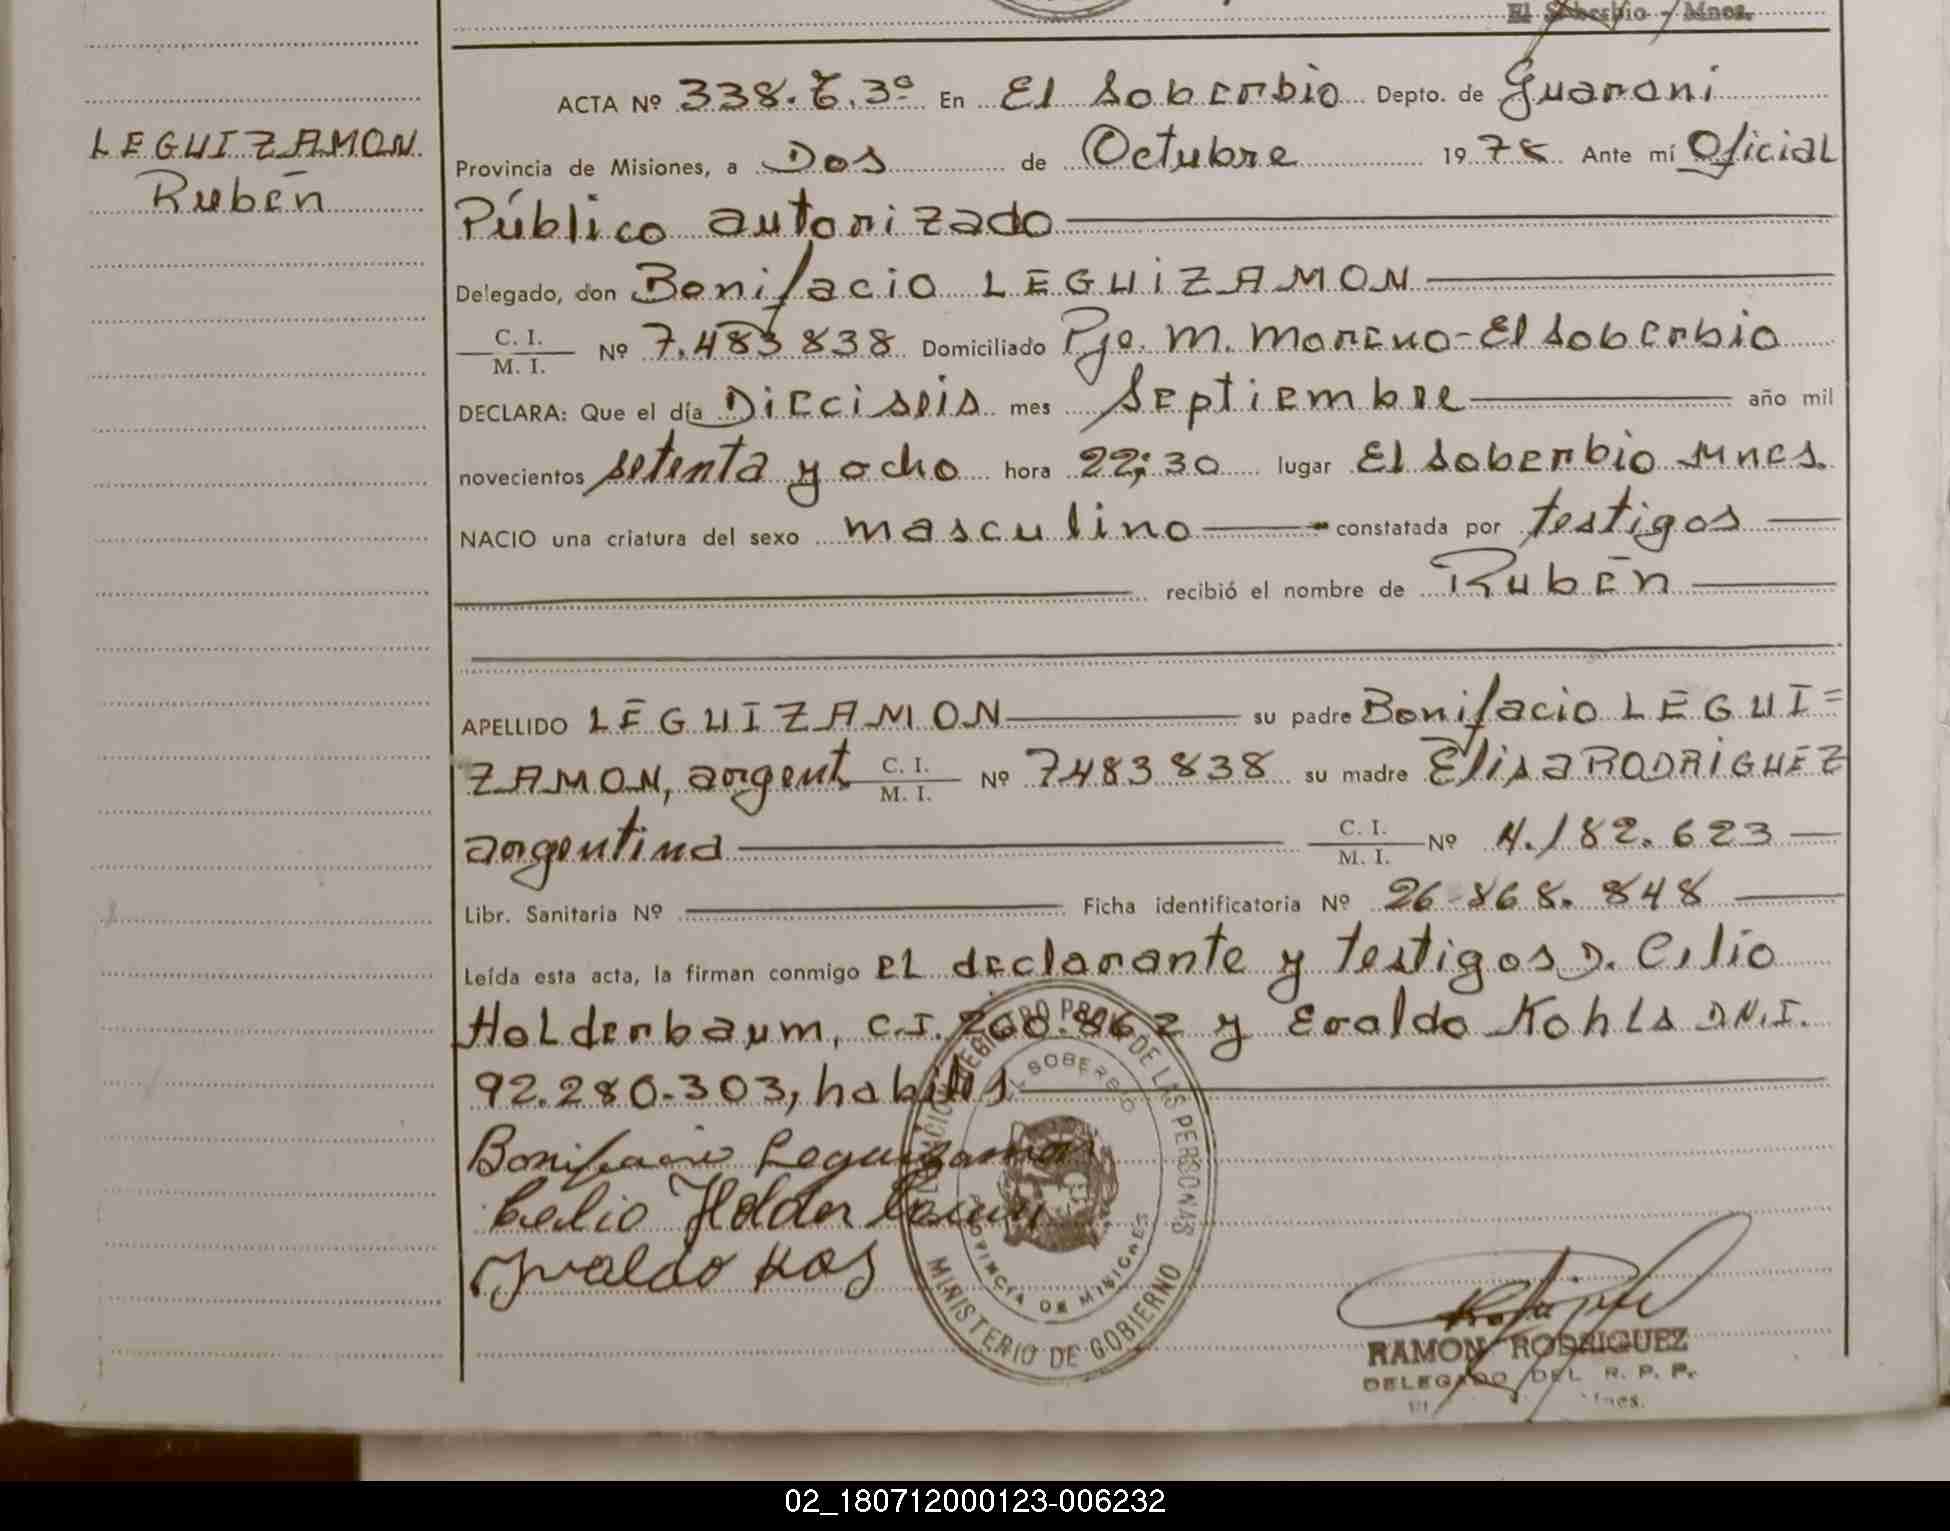 El Soberbio - Mnes.
ACTA Nº 338. T. 3º En El Soberbio Depto. de Guaraní
LEGUIZAMON
Rubén
Provincia de Misiones, a Dos de Octubre 1978 Ante mí Oficial
Público autorizado
Delegado, don Bonifacio LEGUIZAMON
C. I.
M. I. Nº 7.483838 Domiciliado Pje. M. Moreno-El Soberbio
DECLARA: Que el día Dieciseis mes Septiembre año mil
novecientos setenta y ocho hora 22;30 lugar El Soberbio Mnes.
NACIO una criatura del sexo masculino constatada por testigos
recibió el nombre de Rubén
APELLIDO LEGUIZAMON su padre Bonifacio LEGUI=
ZAMON, argent C. I. M. I. Nº 7483838 su madre Elisa RODRIGUEZ
argentina C. I. M. I. Nº 4.182.623
Libr. Sanitaria Nº Ficha identificatoria Nº 26-868.848
Leída esta acta, la firman conmigo el declarante y testigos D. Celio
Holderbaum, C.I. 260.862 y Eraldo Kohls D.N.I.
92.280.303, habiles
Bonifacio Leguizamon
Celio Holderbaum
REGISTRO PROV. DE LAS PERSONAS
EL SOBERBIO
PROVINCIA DE MISIONES
MINISTERIO DE GOBIERNO
RAMON RODRIGUEZ
DELEGADO DEL R. P. P.
Mnes.
02_180712000123-006232